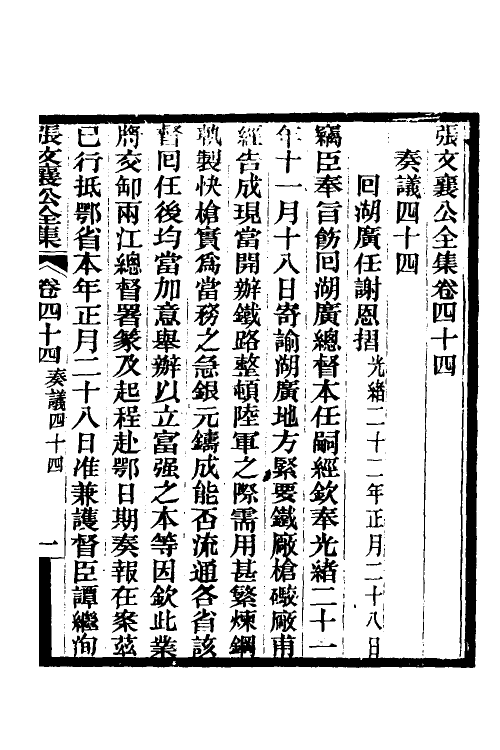 張文襄公全集卷四十四
奏議四十四
回湖廣任謝恩摺光緒二十二年正月二十八日
竊臣奉旨飭回湖廣總督本任嗣經欽奉光緒二十一
年十一月十八日寄諭湖廣地方緊要鐵廠槍礮廠甫
經告成現當開辦鐵路整頓陸軍之際需用甚繁煉鋼
軌製快槍實為當務之急銀元鑄成能否流通各省該
督回任後均當加意舉辦以立富强之本等因欽此業
將交卸兩江總督署篆及起程赴鄂日期奏報在案茲
已行抵鄂省本年正月二十八日准兼護督臣譚繼洵
張文襄公全集 卷四十四 奏議四十四 一